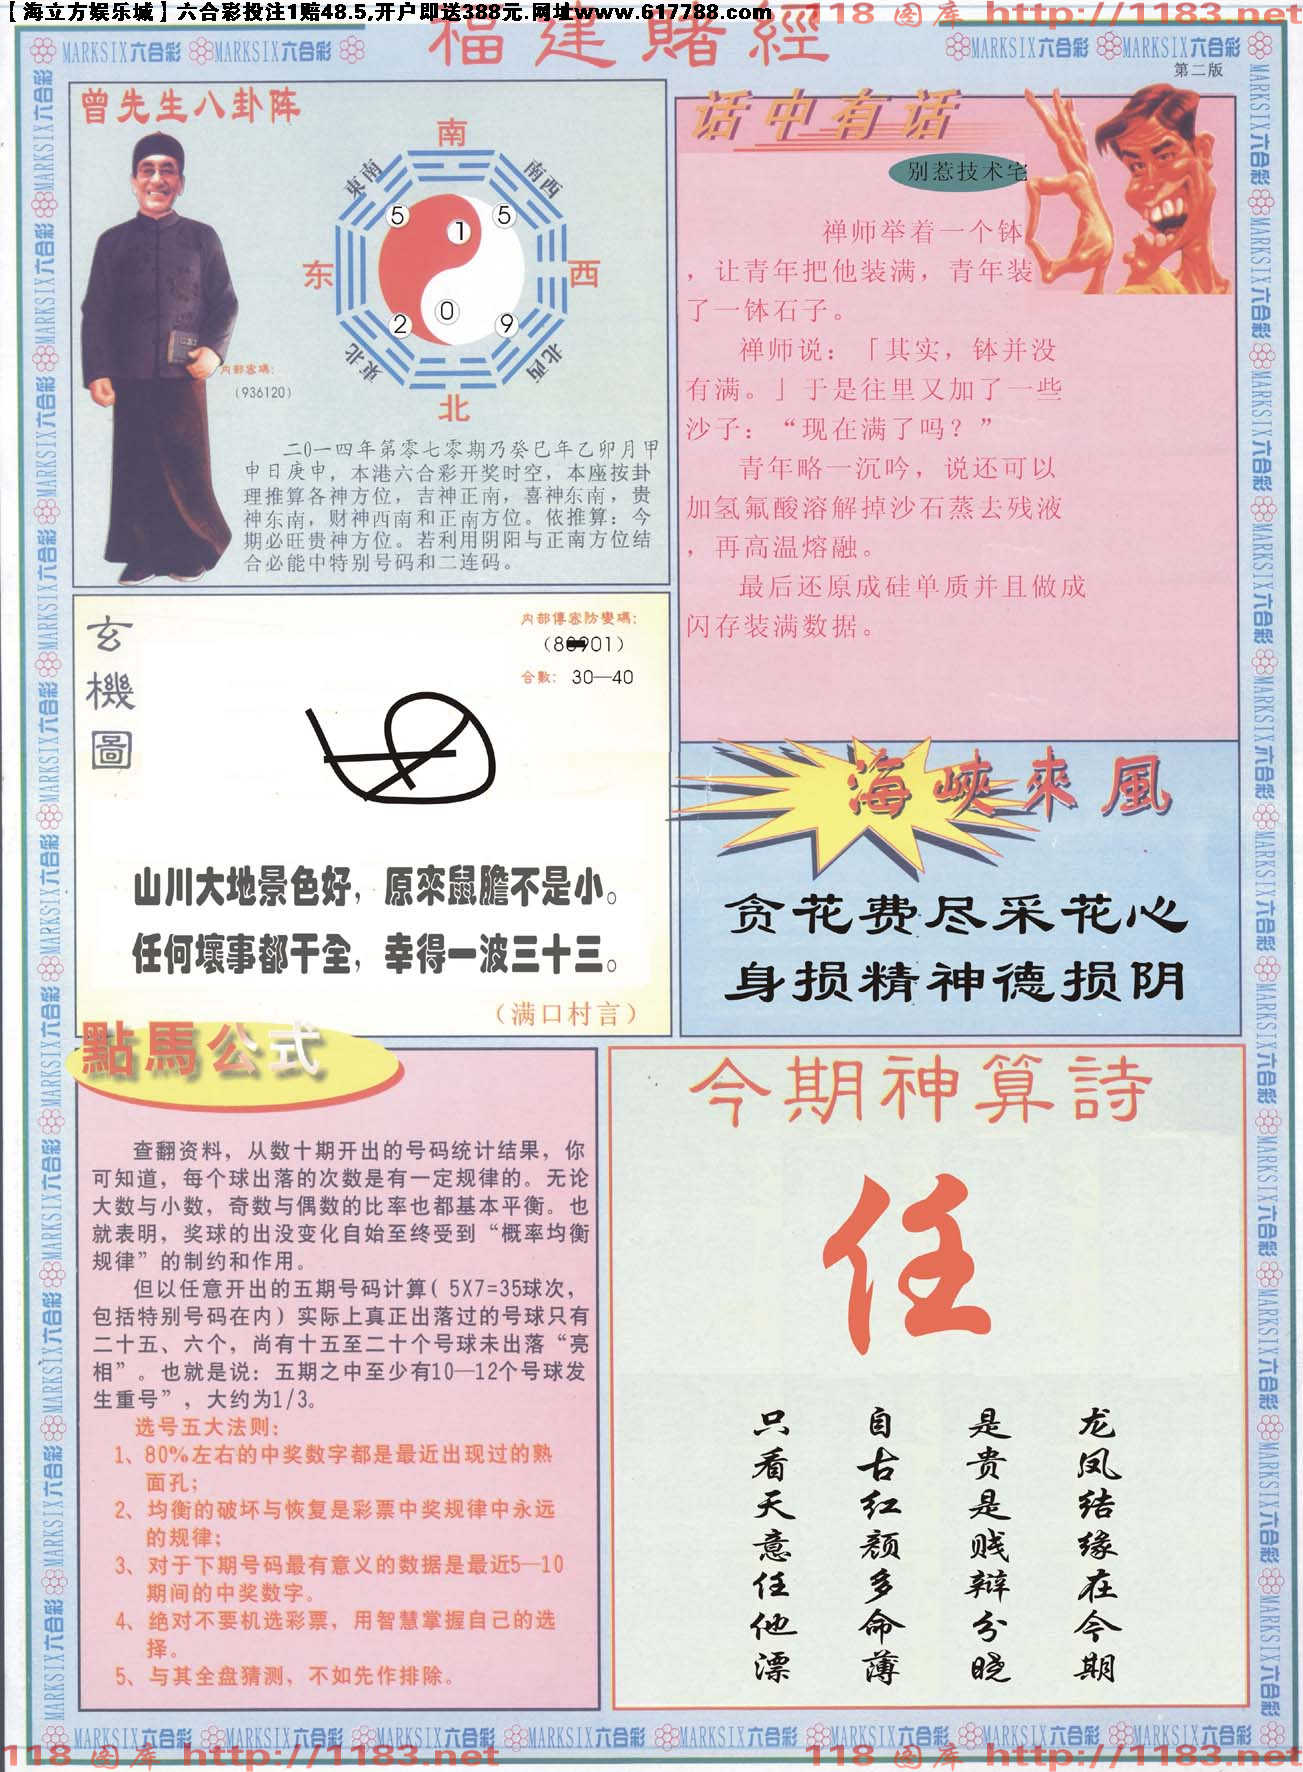 【海立方娱乐城】六合彩投注1赔48.5,开户即送388元.网址www.617788.com
118 图库 http://1183.net
福建賭經
MARKSIX六合彩 MARKSIX六合彩
MARKSIX六合彩 MARKSIX六合彩
第二版
曾先生八卦阵
南
東南
南西
5
1
5
东
西
2
0
9
東北
北西
北
内部密碼：
（936120）
二0一四年第零七零期乃癸巳年乙卯月甲
申日庚申，本港六合彩开奖时空，本座按卦
理推算各神方位，吉神正南，喜神东南，贵
神东南，财神西南和正南方位。依推算：今
期必旺贵神方位。若利用阴阳与正南方位结
合必能中特别号码和二连码。
话中有话
别惹技术宅
禅师举着一个钵
，让青年把他装满，青年装
了一钵石子。
禅师说：「其实，钵并没
有满。」于是往里又加了一些
沙子：“现在满了吗？”
青年略一沉吟，说还可以
加氢氟酸溶解掉沙石蒸去残液
，再高温熔融。
最后还原成硅单质并且做成
闪存装满数据。
玄機圖
内部傳密防變碼：
合數： 30—40
山川大地景色好，原來鼠膽不是小。
任何壞事都干全，幸得一波三十三。
（满口村言）
海峽來風
贪花费尽采花心
身损精神德损阴
點馬公式
查翻资料，从数十期开出的号码统计结果，你
可知道，每个球出落的次数是有一定规律的。无论
大数与小数，奇数与偶数的比率也都基本平衡。也
就表明，奖球的出没变化自始至终受到“概率均衡
规律”的制约和作用。
但以任意开出的五期号码计算（5X7=35球次，
包括特别号码在内）实际上真正出落过的号球只有
二十五、六个，尚有十五至二十个号球未出落“亮
相”。也就是说：五期之中至少有10—12个号球发
生重号”，大约为1/3。
选号五大法则：
1、80%左右的中奖数字都是最近出现过的熟
面孔；
2、均衡的破坏与恢复是彩票中奖规律中永远
的规律；
3、对于下期号码最有意义的数据是最近5—10
期间的中奖数字。
4、绝对不要机选彩票，用智慧掌握自己的选
择。
5、与其全盘猜测，不如先作排除。
今期神算詩
任
龙凤结缘在今期
是贵是贱辩分晓
自古红颜多命薄
只看天意任他漂
MARKSIX六合彩 MARKSIX六合彩 MARKSIX六合彩 MARKSIX六合彩 MARKSIX六合彩 MARKSIX六合彩 MARKSIX六合彩 MARKSIX六合彩
118 图库 http://1183.net
118 图库 http://1183.net